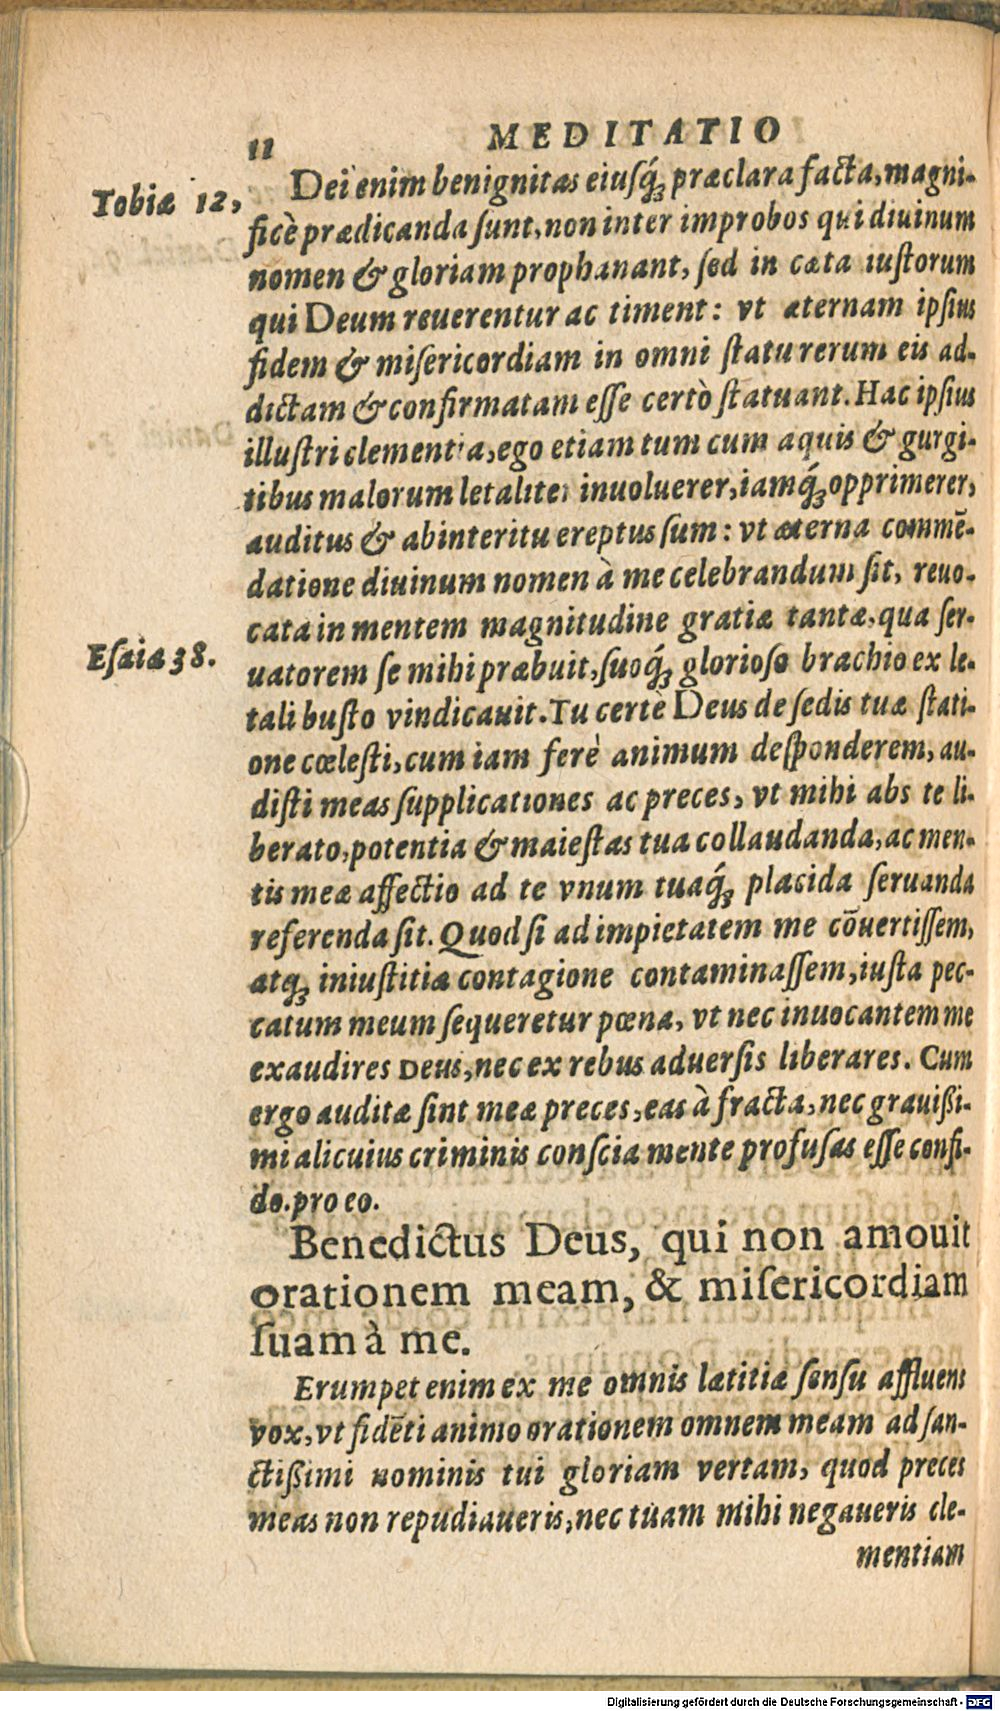 11 MEDITATIO
Tobiæ 12,
Dei enim benignitas eiusq́ꝫ præclara facta, magni-
ficè prædicanda sunt, non inter improbos qui diuinum
nomen & gloriam prophanant, sed in cæta iustorum
qui Deum reuerentur ac timent: vt æternam ipsius
fidem & misericordiam in omni statu rerum eis ad-
dictam & confirmatam esse certò statuant. Hac ipsius
illustri clementia, ego etiam tum cum aquis & gurgi-
tibus malorum letaliter inuoluerer, iamq́ꝫ opprimerer,
auditus & ab interitu ereptus sum: vt æterna commē-
datione diuinum nomen à me celebrandum sit, reuo-
cata in mentem magnitudine gratiæ tantæ, qua ser-
Esaiæ 38.
uatorem se mihi præbuit, suoq́ꝫ glorioso brachio ex le-
tali busto vindicauit. Tu certè Deus de sedis tuæ stati-
one cœlesti, cum iam ferè animum desponderem, au-
disti meas supplicationes ac preces, vt mihi abs te li-
berato, potentia & maiestas tua collaudanda, ac men-
tis meæ affectio ad te vnum tuaq́ꝫ placida seruanda
referenda sit. Quod si ad impietatem me cōuertissem,
atqꝫ iniustitiæ contagione contaminassem, iusta pec-
catum meum sequeretur pœna, vt nec inuocantem me
exaudires Deus, nec ex rebus aduersis liberares. Cum
ergo auditæ sint meæ preces, eas à fracta, nec grauißi-
mi alicuius criminis conscia mente profusas esse confi-
do. pro eo.
Benedictus Deus, qui non amouit
orationem meam, & misericordiam
suam à me.
Erumpet enim ex me omnis lætitiæ sensu affluens
vox, vt fidēti animo orationem omnem meam ad san-
ctißimi nominis tui gloriam vertam, quod preces
meas non repudiaueris, nec tuam mihi negaueris cle-
mentiam
Digitalisierung gefördert durch die Deutsche Forschungsgemeinschaft - DFG